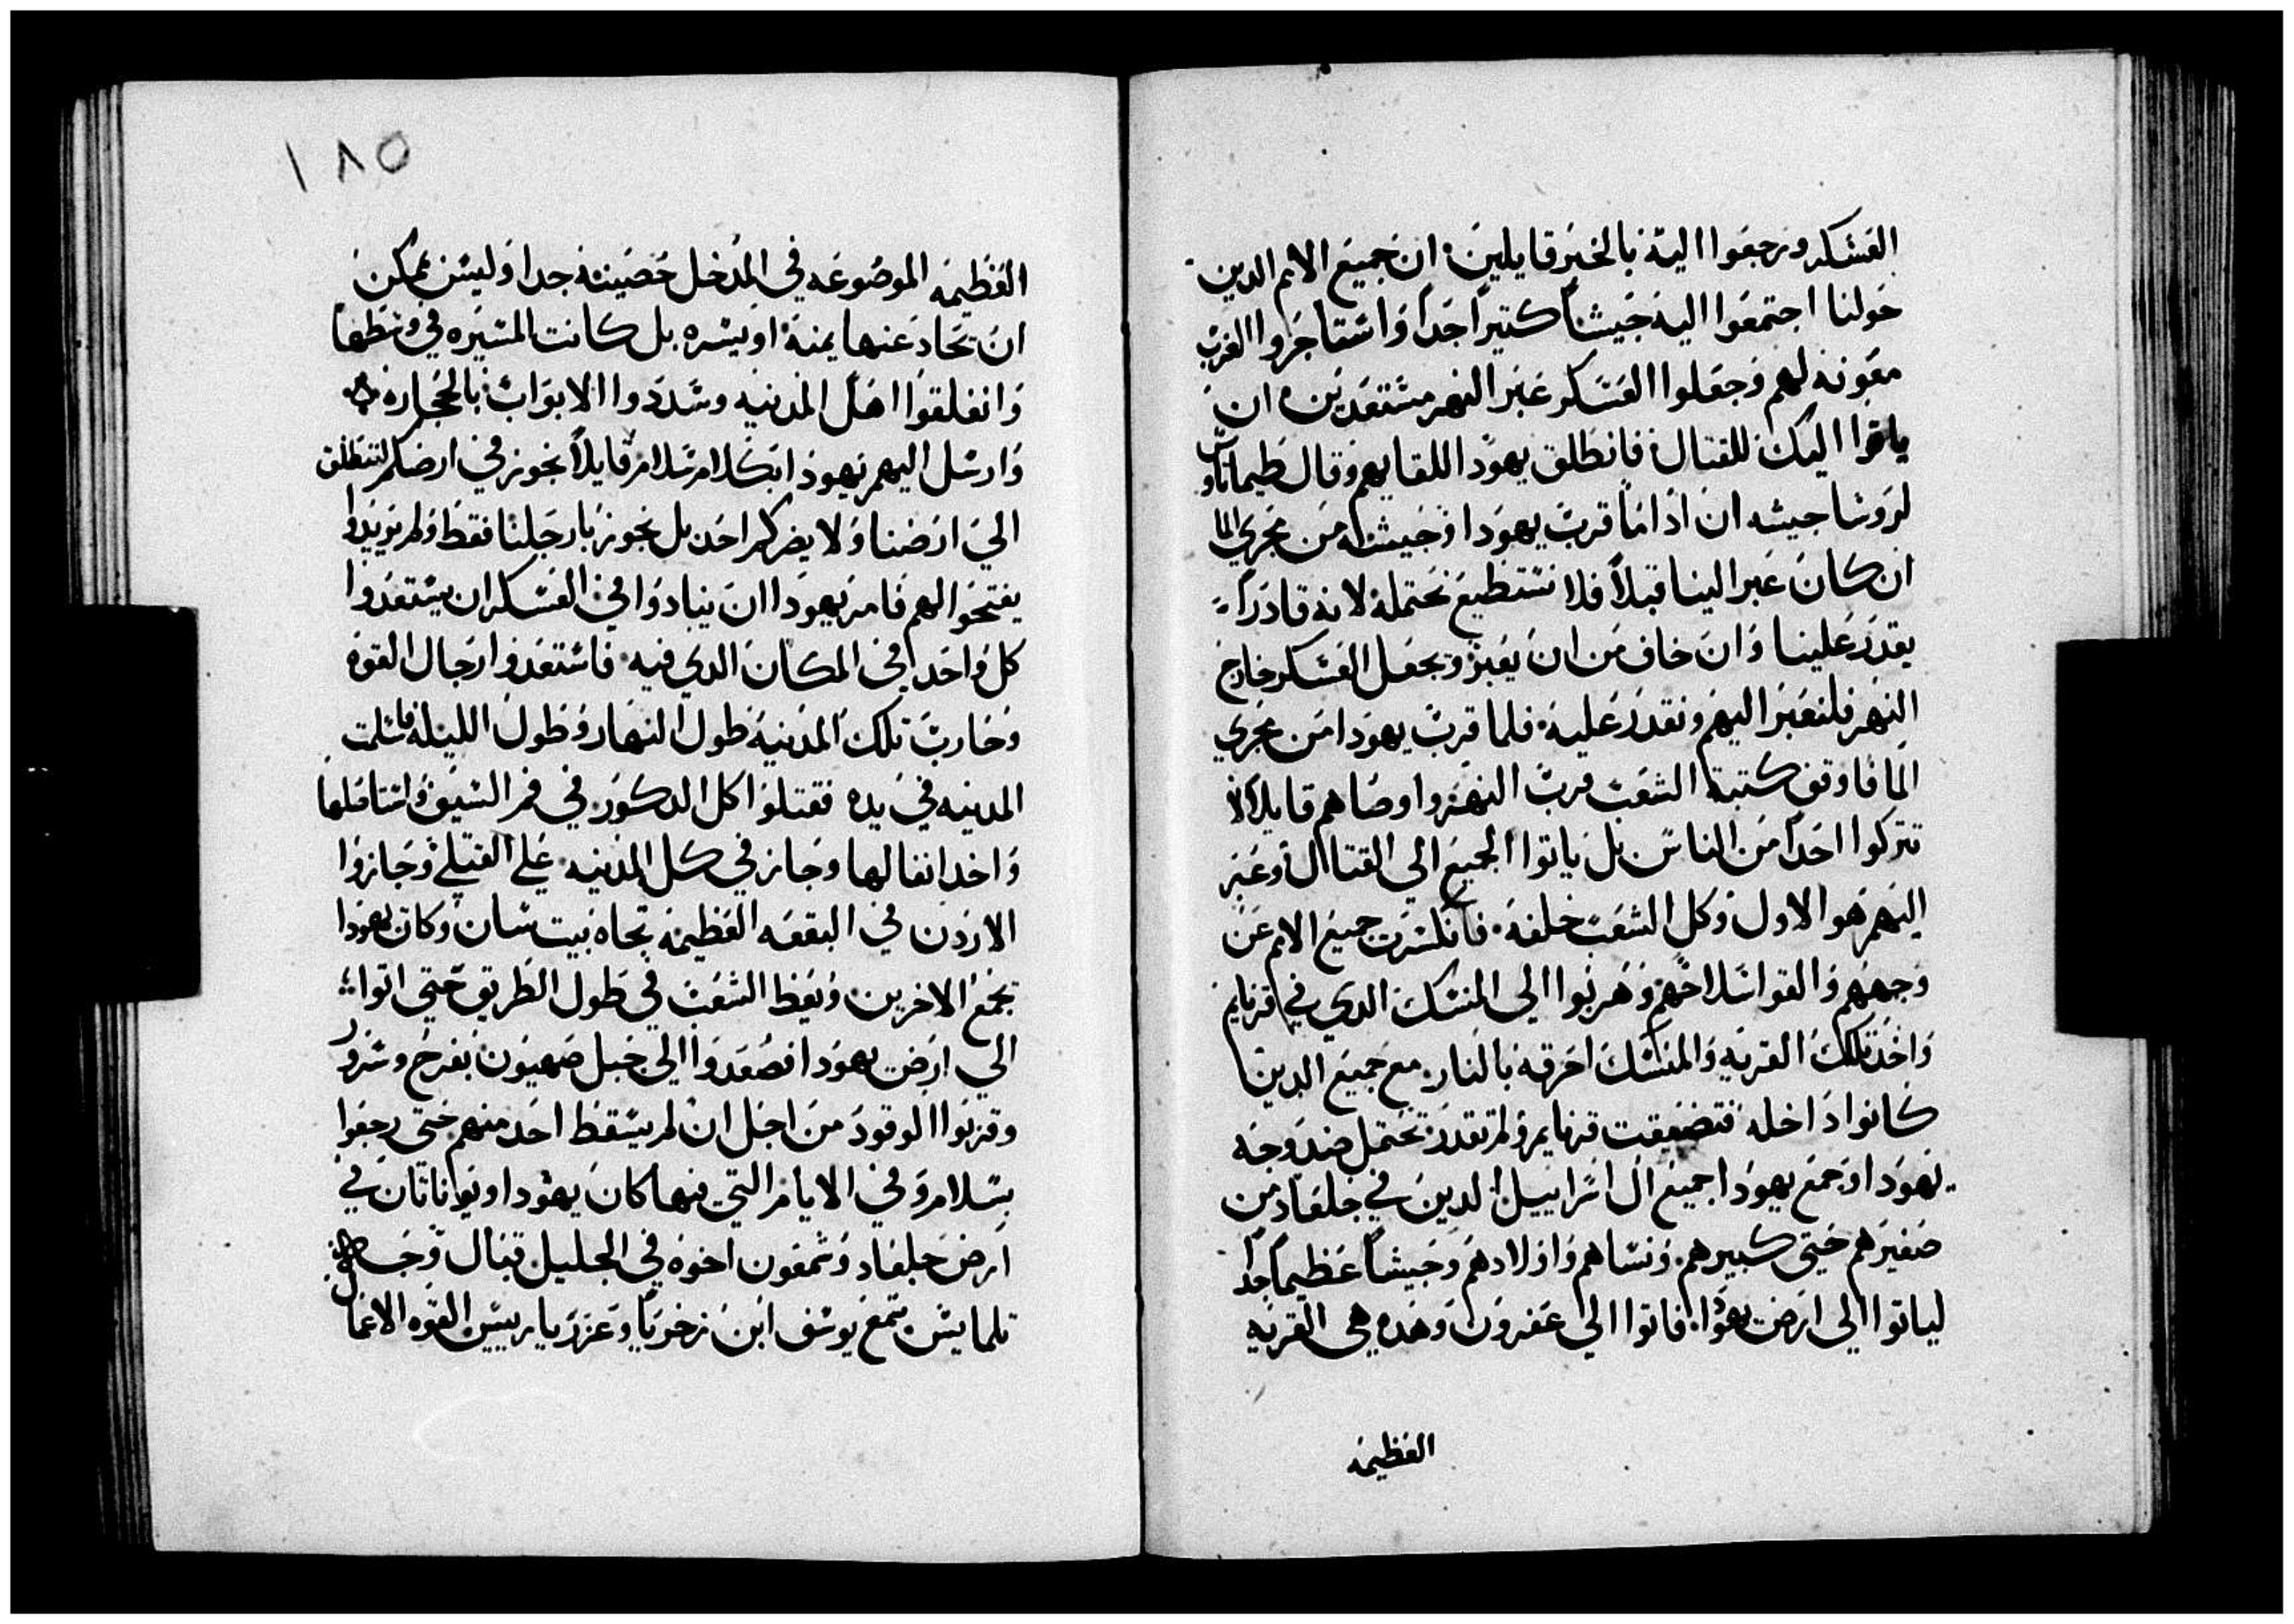 العسكر ورجعوا اليه بالخبر قايلين ان جميع الامم الدين
حولنا اجتمعوا اليه جيشاً كتيراً جداً واستاجروا العرب
معونه لهم وجعلوا العسكر عبر النهر مستعدين ان
ياتوا اليك للقتال فانطلق يهودا للقايهم وقال طيماتاوس
لروسا جيشه ان اذا ما قرب يهودا وجيشه من مجري الما
ان كان عبر الينا قبلاً فلا نستطيع نحتمله لانه قادراً
يقدر علينا وان خاف من ان يعبر ويجعل العسكر خارج
النهر فلنعبر اليهم ونقدر عليه فلما قرب يهودا من مجري
الما فاوقف كتبة الشعب قرب النهر واوصاهم قايلاً لا
تتركوا احداً من الناس بل ياتوا الجميع الي القتال وعبر
النهر هو الاول وكل الشعب خلفه فانكسرت جميع الامم عن
وجههم والقوا سلاحهم وهربوا الي المنسك الدي في قرنايم
واخد تلك القريه والمنسك احرقه بالنار مع جميع الدين
كانوا داخله فتضيقت قرنايم ولم تقدر تحتمل ضد وجه
يهودا وجمع يهودا جميع ال اسراييل الدين في جلعاد من
صغيرهم حتي كبيرهم ونساهم واولادهم وجيشاً عظيماً جداً
لياتوا الي ارض يهودا فاتوا الي عفرون وهده هي القريه
العظيمه
١٨٥
العظيمه الموضوعه في المدخل حصينه جدا وليس يمكن
ان تحاد عنها يمنة او يسره بل كانت المسيره في وسطها
وانغلقوا اهل المدينه وسددوا الابواب بالحجاره
وارسل اليهم يهودا بكلام سلام قايلاً نجوز في ارضكم لننطلق
الي ارضنا ولا يضركم احد بل نجوز بارجلنا فقط ولم يريدوا
يفتحوا لهم فامر يهودا ان ينادوا في العسكر ان يستعدوا
كل واحد في المكان الدي فيه فاستعدوا رجال القوه
وحارب تلك المدينه طول النهار وطول الليله فاسلمت
المدينه في يده فقتلوا كل الدكور في فم السيف واستاصلها
واخد انفالها وجاز في كل المدينه علي القتلي وجازوا
الاردن في البقعه العظيمه تجاه بيت سان وكان يهودا
يجمع الاخرين ويعظ الشعب في طول الطريق حتي اتوا
الي ارض يهودا فصعدوا الي جبل صهيون بفرح وسرور
وقربوا الوقود من اجل ان لم يسقط احد منهم حتي رجعوا
بسلام وفي الايام التي فيها كان يهودا ويوناتان في
ارض جلعاد وشمعون اخوه في الجليل قبال وجه
تلمايس سمع يوسف ابن زخريا وعزريا رييس القوه الاعما